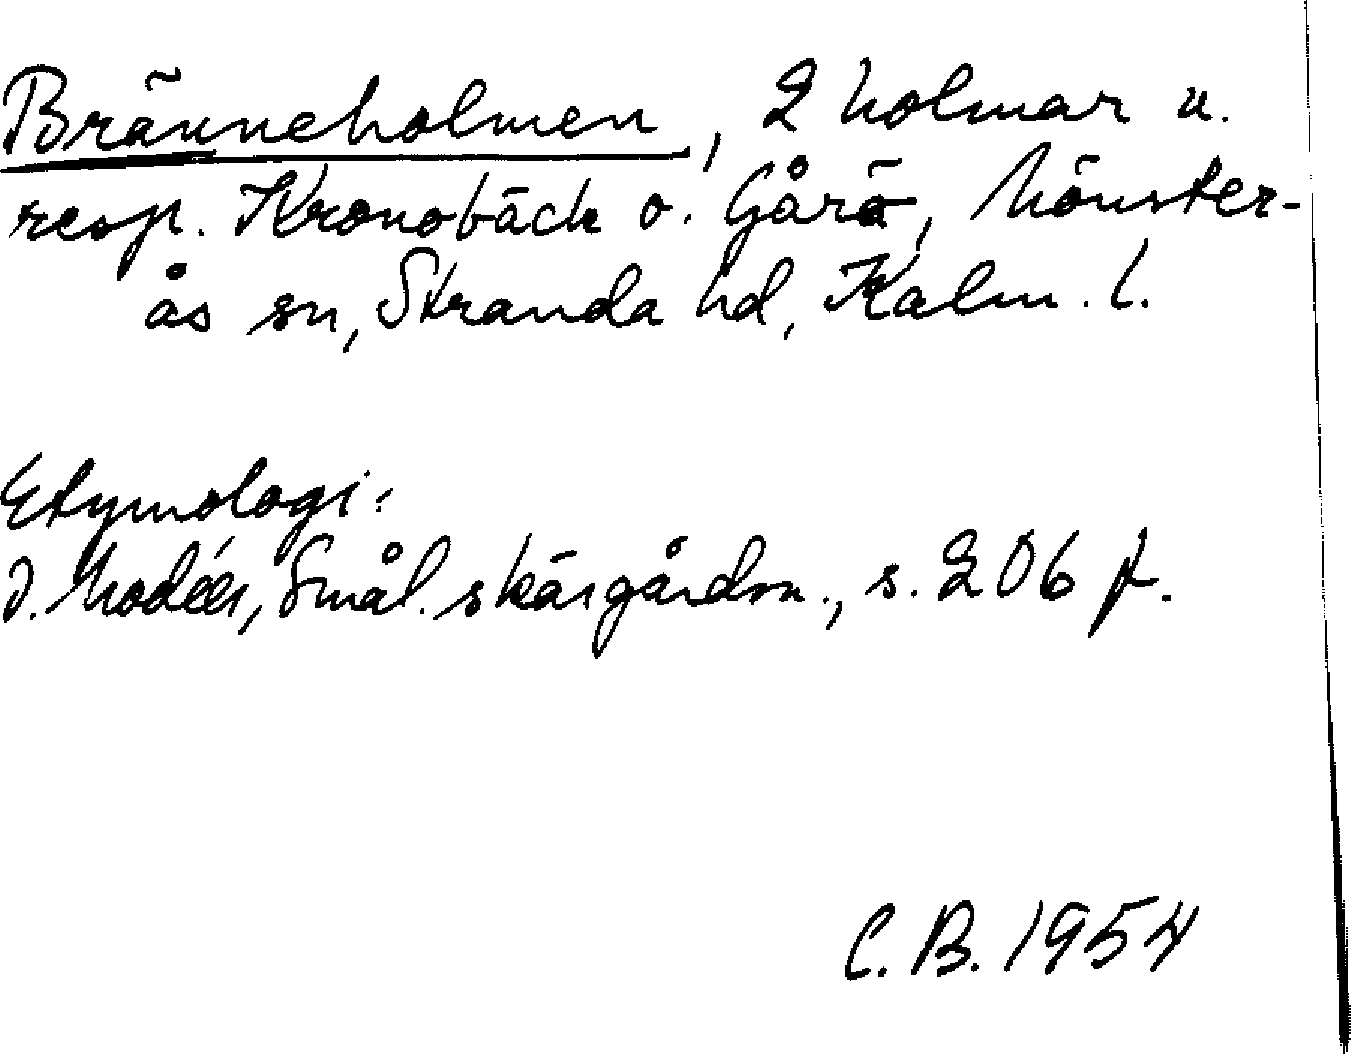 Bränneholmen, 2 holmar u.
resp. Kronobäck o. Gårö, Mönster-
ås sn, Stranda hd, Kalm. l.
Etymologi:
I. Modéer, Smål. skärgårdsn., s. 206 f.
C. B. 1954